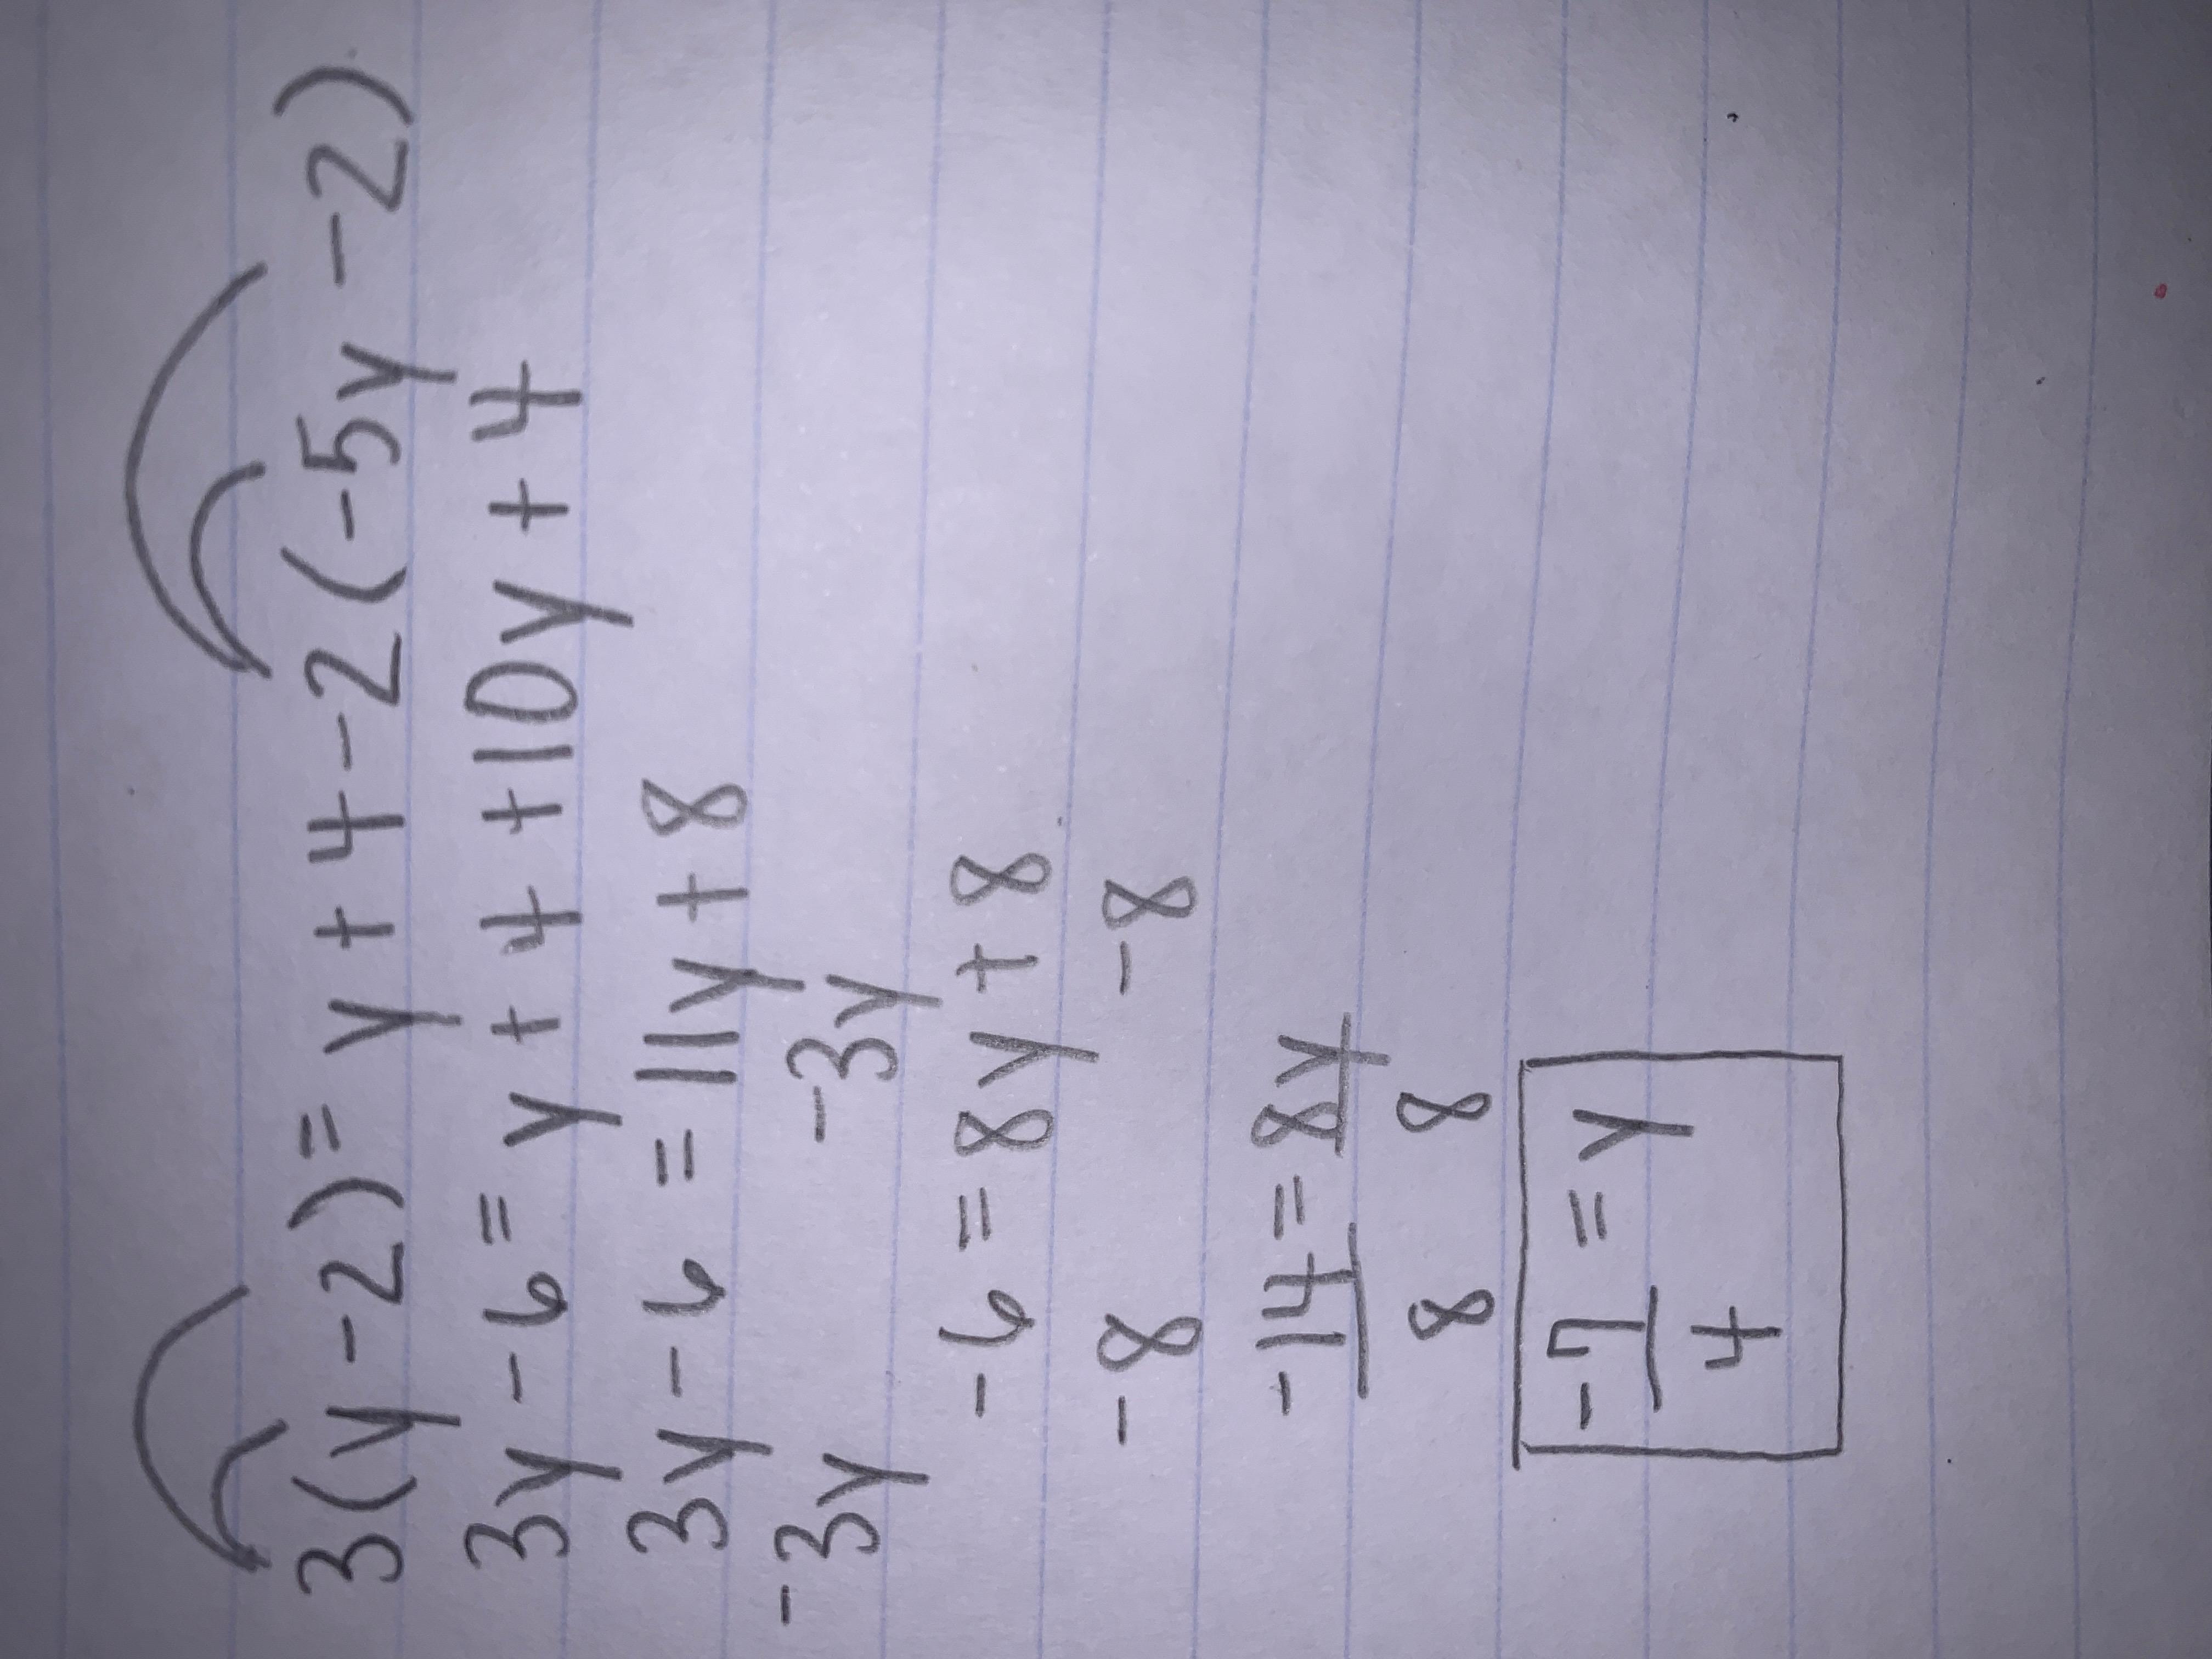 3(y-2)= y+4-2(-5y-2)
3y-6= y+4+10y+4
3y-6=11y+8
-3y -3y
-6=8y+8
-8 -8
-14=8y
8 8
-7=y
4